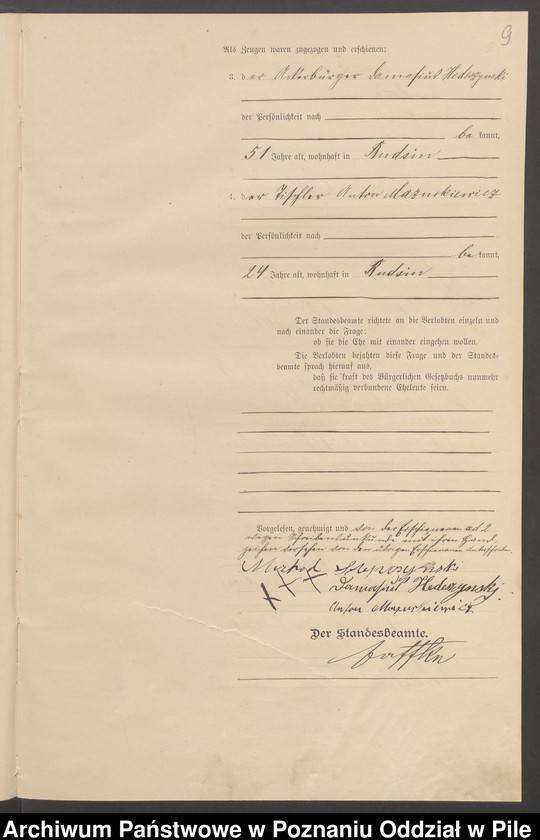 9
Als Zeugen waren zugezogen und erschienen:
3. der Ackerbürger Damasius Hedezynski
der Persönlichkeit nach
be kannt,
51 Jahre alt, wohnhaft in Rudsin
4. der Tischler Anton Mazurkiewicz
der Persönlichkeit nach
be kannt,
24 Jahre alt, wohnhaft in Rudsin
Der Standesbeamte richtete an die Verlobten einzeln und
nach einander die Frage:
ob sie die Ehe mit einander eingehen wollen.
Die Verlobten bejahten diese Frage und der Standes-
beamte sprach hierauf aus,
daß sie kraft des Bürgerlichen Gesetzbuchs nunmehr
rechtmäßig verbundene Eheleute seien.
Vorgelesen, genehmigt und von der Erschienenen ad 2
wegen Schreibensunkunde mit ihren Hand
zeichen versehen von den übrigen Erschienenen unterschrieben.
+ + +
Damasius Hedezynski
Anton Mazurkiewicz
Der Standesbeamte.
Archiwum Państwowe w Poznaniu Oddział w Pile